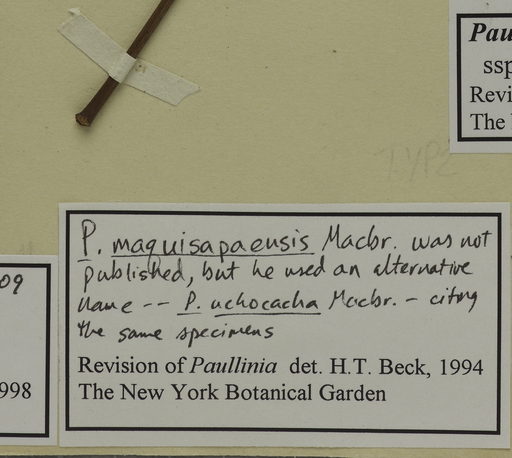 Pau
ssp
Revi
The
TYPE
P. maquisapaensis Macbr. was not
published, but he used an alternative
name -- P. uchocacha Macbr. - citing
the same specimens
Revision of Paullinia det. H.T. Beck, 1994
The New York Botanical Garden
09
998